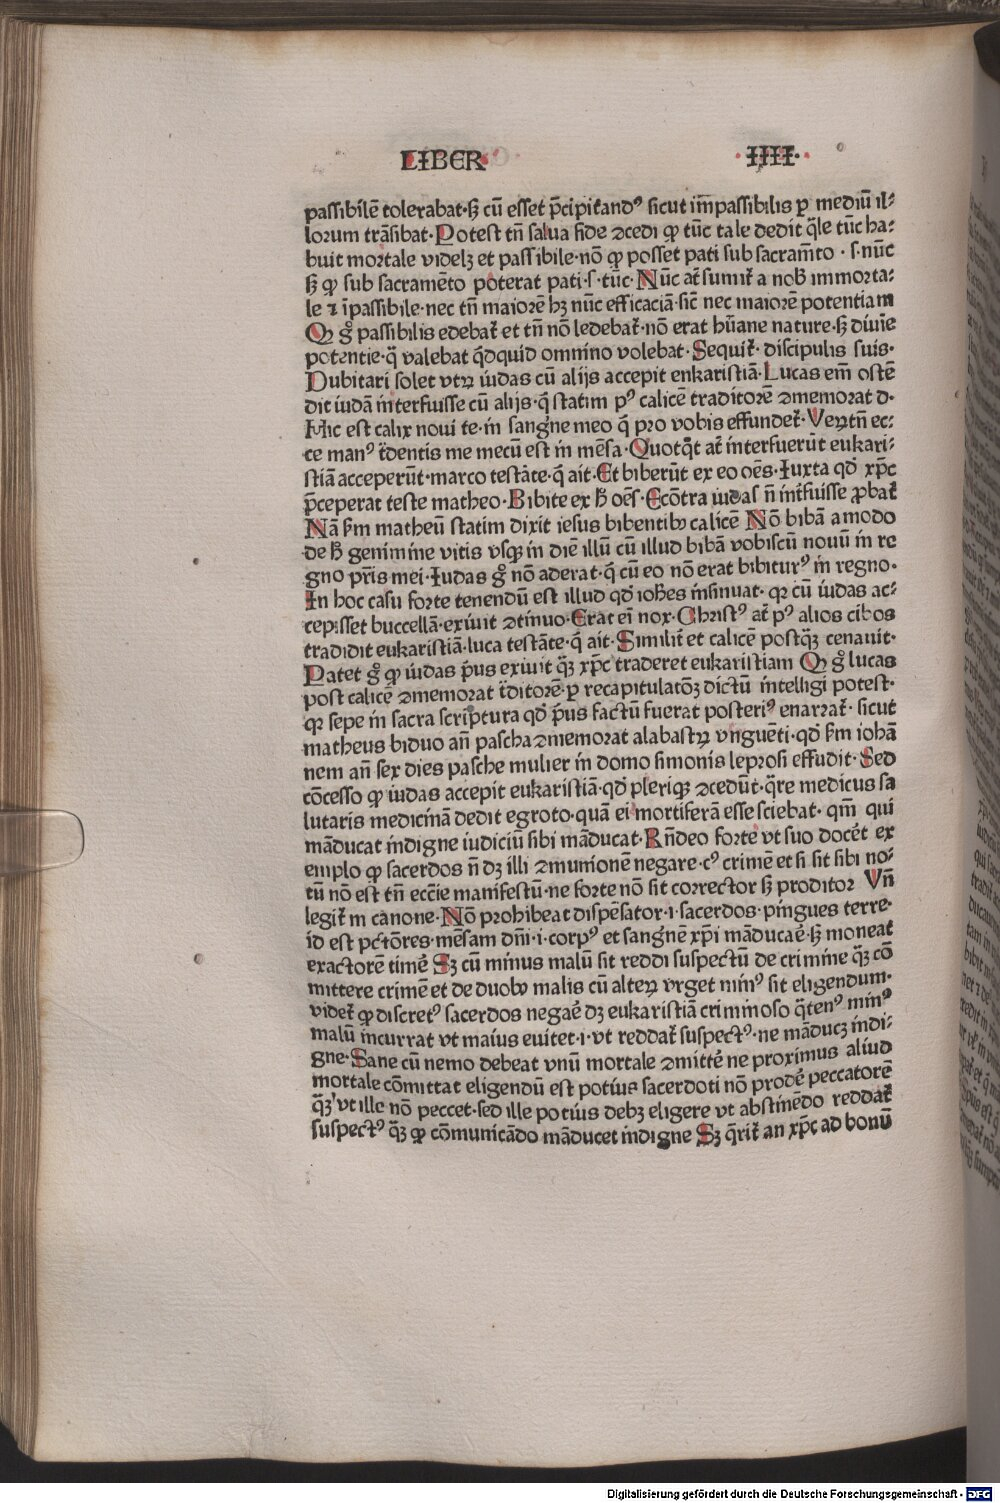 LIBER ·IIII·
passibilē tolerabat·sꝫ cū esset p̄cipitandꝰ sicut im̄passibilis p mediū il⸗
lorum trāsibat·Potest tn̄ salua fide ꝯcedi ꝙ tūc tale dedit q̄le tūc ha⸗
buit mortale videlꝫ et passibile·nō ꝙ posset pati sub sacram̄to·s·nūc
sꝫ ꝙ sub sacramēto poterat pati·s·tūc·Nūc at̄ sumit̄ a nob̄ immorta⸗
le ⁊ īpassibile·nec tn̄ maiorē hꝫ nūc efficaciā·sic̄ nec maiorē potentiam
Ꝙ g̊ passibilis edebat̄ et tn̄ nō ledebat̄·nō erat hūane nature·sꝫ diuīe
potentie·q̄ valebat q̄dquid omnino volebat·Sequit̄·discipulis suis·
Dubitari solet vtꝝ iudas cū alijs accepit enkaristiā·Lucas em̄ ostē
dit iudā interfuisse cū alijs·q̄ statim pꝰ calicē traditorē ꝯmemorat d·
Hic est calix noui te·in sangne meo q̄ pro vobis effundet̄·Veꝝtn̄ ec⸗
ce manꝰ t̄dentis me mecū est in mēsa·Quotq̄t at̄ interfuerūt eukari⸗
stiā acceperūt·marco testāte·q̄ ait·Et biberūt ex eo oēs·Iuxta qd̄ xp̄c
p̄ceperat teste matheo·Bibite ex h̄ oēs·Ecōtra iudas n̄ int̄fuisse ꝓbat̄
Nā scd̄m matheū statim dixit iesus bibentibꝫ calicē Nō bibā amodo
de h̄ genimine vitis vsqꝫ in diē illū cū illud bibā vobiscū nouū in re
gno pr̄is mei·Iudas g̊ nō aderat·q̄ cū eo nō erat bibiturꝰ in regno·
In hoc casu forte tenendū est illud qd̄ ioh̄es insinuat·qꝛ cū iudas ac⸗
cepisset buccellā·exiuit ꝯtinuo·Erat eī nox·Christꝰ at̄ pꝰ alios cibos
tradidit eukaristiā·luca testāte·q̄ ait·Similit̄ et calicē postq̄ꝫ cenauit·
Patet g̊ ꝙ iudas p̄us exiuit q̄ꝫ xp̄c traderet eukaristiam Ꝙ g̊ lucas
post calicē ꝯmemorat t̄ditorē·p recapitulatōꝫ dictū intelligi potest·
qꝛ sepe in sacra scriptura qd̄ p̄us factū fuerat posteriꝰ enarrat̄·sicut
matheus biduo an̄ pascha ꝯmemorat alabastꝝ vnguēti·qd̄ scd̄m iohā
nem an̄ sex dies pasche mulier in domo simonis leprosi effudit·Sed
cōcesso ꝙ iudas accepit eukaristiā·qd̄ pleriqꝫ ꝯcedūt·q̄re medicus sa
lutaris medicinā dedit egroto·quā ei mortiferā esse sciebat·qm̄ qui
māducat indigne iudiciū sibi māducat·Rn̄deo forte vt suo docēt ex
emplo ꝙ sacerdos n̄ dꝫ illi ꝯmunionē negare·cꝰ crimē et si sit sibi no⸗
tū nō est·tn̄ eccīe manifestū·ne forte nō sit corrector sꝫ proditor Vn̄
legit̄ in canone·Nō prohibeat dispēsator·i·sacerdos·pingues terre·
id est pctōres·mēsam dn̄i·i·corpꝰ et sangnē xp̄i māducaē·sꝫ moneat
exactorē timē Sꝫ cū minus malū sit reddi suspectū de crimine q̄ꝫ cō
mittere crimē et de duobꝫ malis cū alteꝝ vrget minꝰ sit eligendum·
videt̄ ꝙ discretꝰ sacerdos negaē dꝫ eukaristiā criminoso q̄tenꝰ minꝰ
malū incurrat vt maius euitet·i·vt reddat̄ suspectꝰ·ne māducꝫ indi⸗
gne·Sane cū nemo debeat vnū mortale ꝯmittē ne proximus aliud
mortale cōmittat eligendū est potius sacerdoti nō prodē peccatorē
q̄ꝫ vt ille nō peccet·sed ille potius debꝫ eligere vt abstinēdo reddat̄
suspectꝰ q̄ꝫ ꝙ cōmunicādo māducet indigne Sꝫ q̄rit̄ an xp̄c ad bonū
Digitalisierung gefördert durch die Deutsche Forschungsgemeinschaft - DFG